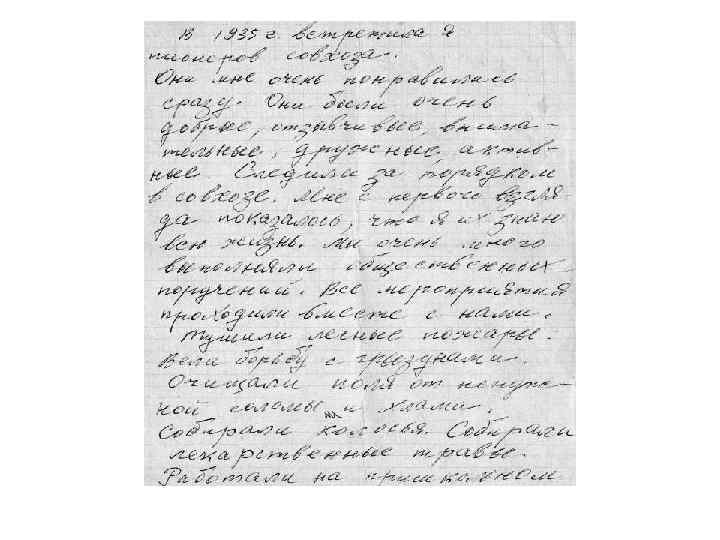 В 1935 г. встретила я
пионеров совхоза.
Они мне очень понравились
сразу. Они были очень
добрые, отзывчивые, внима-
тельные, дружные, актив-
ные. Следили за порядком
в совхозе. Мне с первого взгля-
да показалось, что я их знаю
всю жизнь. Мы очень много
выполняли общественных
поручений. Все мероприятия
проходили вместе с нами.
Тушили лесные пожары.
Вели борьбу с грызунами.
Очищали поля от ненуж-
ной соломы и хлама.
Собирали колосья. Собирали
лекарственные травы.
Работали на пришкольном